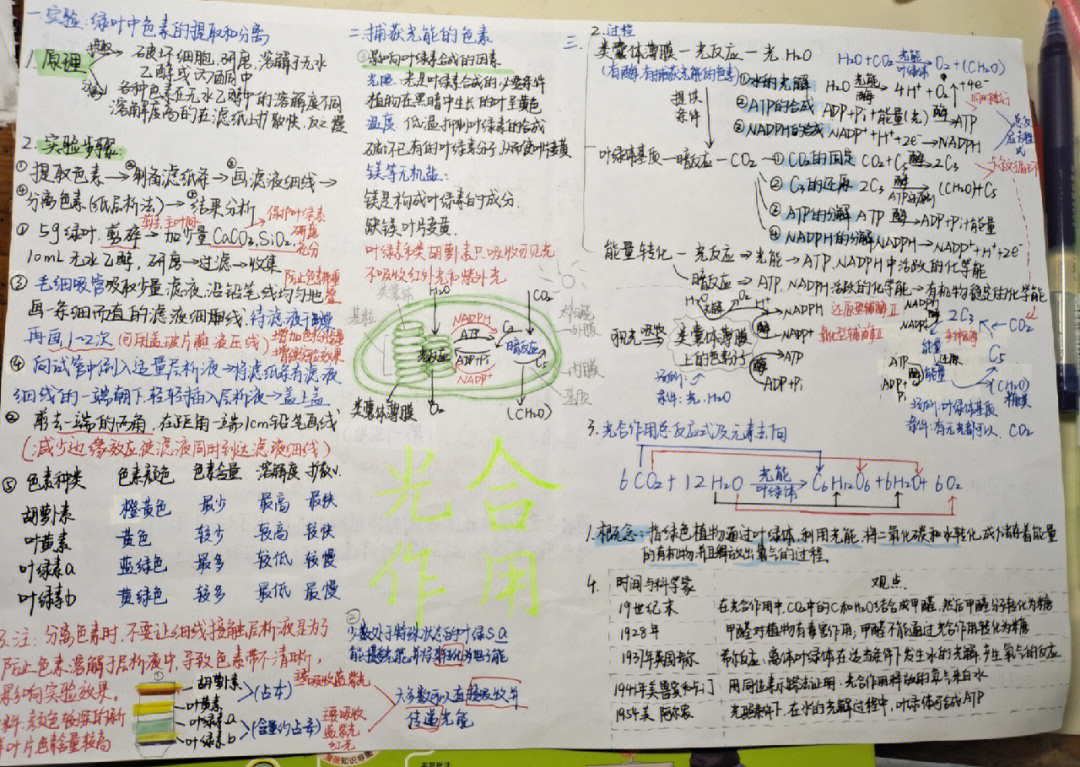 一.实验:绿叶中色素的提取和分离
1.原理
提取 破坏细胞,研磨,溶解于无水
乙醇或丙酮中
各种色素在无水乙醇中的溶解度不同
溶解度高的在滤纸上扩散快,反之慢
2.实验步骤:
①提取色素→②制备滤纸条→③画滤液细线→
④分离色素(纸层析法)→⑤结果分析
剪去主叶脉 保护叶绿素
① 5g绿叶.剪碎→加少量CaCO₃,SiO₂.
研磨充分
10mL无水乙醇,研磨→过滤→收集
防止色素带重叠
③毛细吸管吸取少量滤液,沿铅笔线均匀地
画一条细而直的滤液细线.待滤液干燥
再画1~2次(可用盖玻片蘸液压线)
④向试管中倒入适量层析液→将滤纸条有滤液
细线的一端朝下轻轻插入层析液→盖上盖
②剪去一端的两角,在距角一端1cm铅笔画线
(减少边缘效应使滤液同时到达滤液细线)
⑤ 色素种类 色素颜色 色素含量 溶解度 扩散v.
胡萝卜素 橙黄色 最少 最高 最快
叶黄素 黄色 较少 较高 较快
叶绿素a 蓝绿色 最多 较低 较慢
叶绿素b 黄绿色 较多 最低 最慢
3.注: 分离色素时.不要让细线接触层析液是为了
防止色素溶解于层析液中,导致色素带不清晰,
影响实验效果.
叶片色素含量较高
胡萝卜素
叶黄素
叶绿素a
叶绿素b
二.捕获光能的色素
①影响叶绿素合成的因素
光照.光是叶绿素合成的必要条件
植物在黑暗中生长的叶呈黄色
温度.低温抑制叶绿素的合成
破坏已有的叶绿素分子从而使叶变黄
镁等无机盐:
镁是构成叶绿素的成分.
缺镁叶片变黄.
叶绿素和类胡萝卜素只吸收可见光
不吸收红外光和紫外光
类囊体
H₂O CO₂
基粒
NADPH
ATP
光反应 暗反应
ADP+Pi
NADP⁺
C₃
C₅
外膜
内膜
基质
类囊体薄膜 O₂ (CH₂O)
光合作用
②
少数处于特殊状态的叶绿素a
能捕获光能并将转化为电能
主要吸收蓝紫光
主要吸收
蓝紫光
红光
大多数可以直接吸收并
传递光能
三.
2.过程
类囊体薄膜—光反应—光.H₂O
(有酶,有捕获光能的色素)
H₂O+CO₂ 光能 叶绿体 O₂+(CH₂O)
提供条件
①水的光解 H₂O 光能 酶 4H⁺+O₂↑+4e⁻
②ATP的合成 ADP+Pi+能量(光) 酶→ATP
③NADPH的合成 NADP⁺+H⁺+2e⁻→NADPH
叶绿体基质—暗反应—CO₂
①CO₂的固定 CO₂+C₅ 酶→2C₃
卡尔文循环
②C₃的还原 2C₃ 酶 (CH₂O)+C₅
③ATP的分解 ATP 酶→ADP+Pi+能量
④NADPH的分解 NADPH→NADP⁺+H⁺+2e⁻
能量转化—光反应→光能→ATP.NADPH中活跃的化学能
暗反应→ATP.NADPH活跃的化学能→有机物稳定的化学能
类囊体薄膜
上的色素分子
H₂O
O₂
H⁺
NADPH
还原型辅酶Ⅱ
NADP⁺
氧化型辅酶Ⅱ
ATP
ADP+Pi
场所:
条件:光.H₂O
NADPH
NADP⁺
能量
还原
ATP
ADP+Pi
能量
2C₃ CO₂
C₅
(CH₂O)
糖类
场所:叶绿体基质
条件:有无光都可以.CO₂
3.光合作用总反应式及元素去向
6CO₂+12H₂O 光能 叶绿体 C₆H₁₂O₆+6H₂O+6O₂
1.概念:指绿色植物通过叶绿体.利用光能.将二氧化碳和水转化成储存着能量
的有机物,并且释放出氧气的过程.
4. 时间与科学家 观点
19世纪末 在光合作用中,CO₂中的C和H₂O结合成甲醛,然后甲醛分子转化为糖
1928年 甲醛对植物有毒害作用,甲醛不能通过光合作用转化为糖
1937年英国希尔 希尔反应:离体叶绿体在适当条件下发生水的光解,产生氧气的反应
1941年美鲁宾和卡门 用同位素示踪法证明:光合作用释放的氧气来自水
1954美 阿尔农 光照条件下.在水的光解过程中,叶绿体可合成ATP